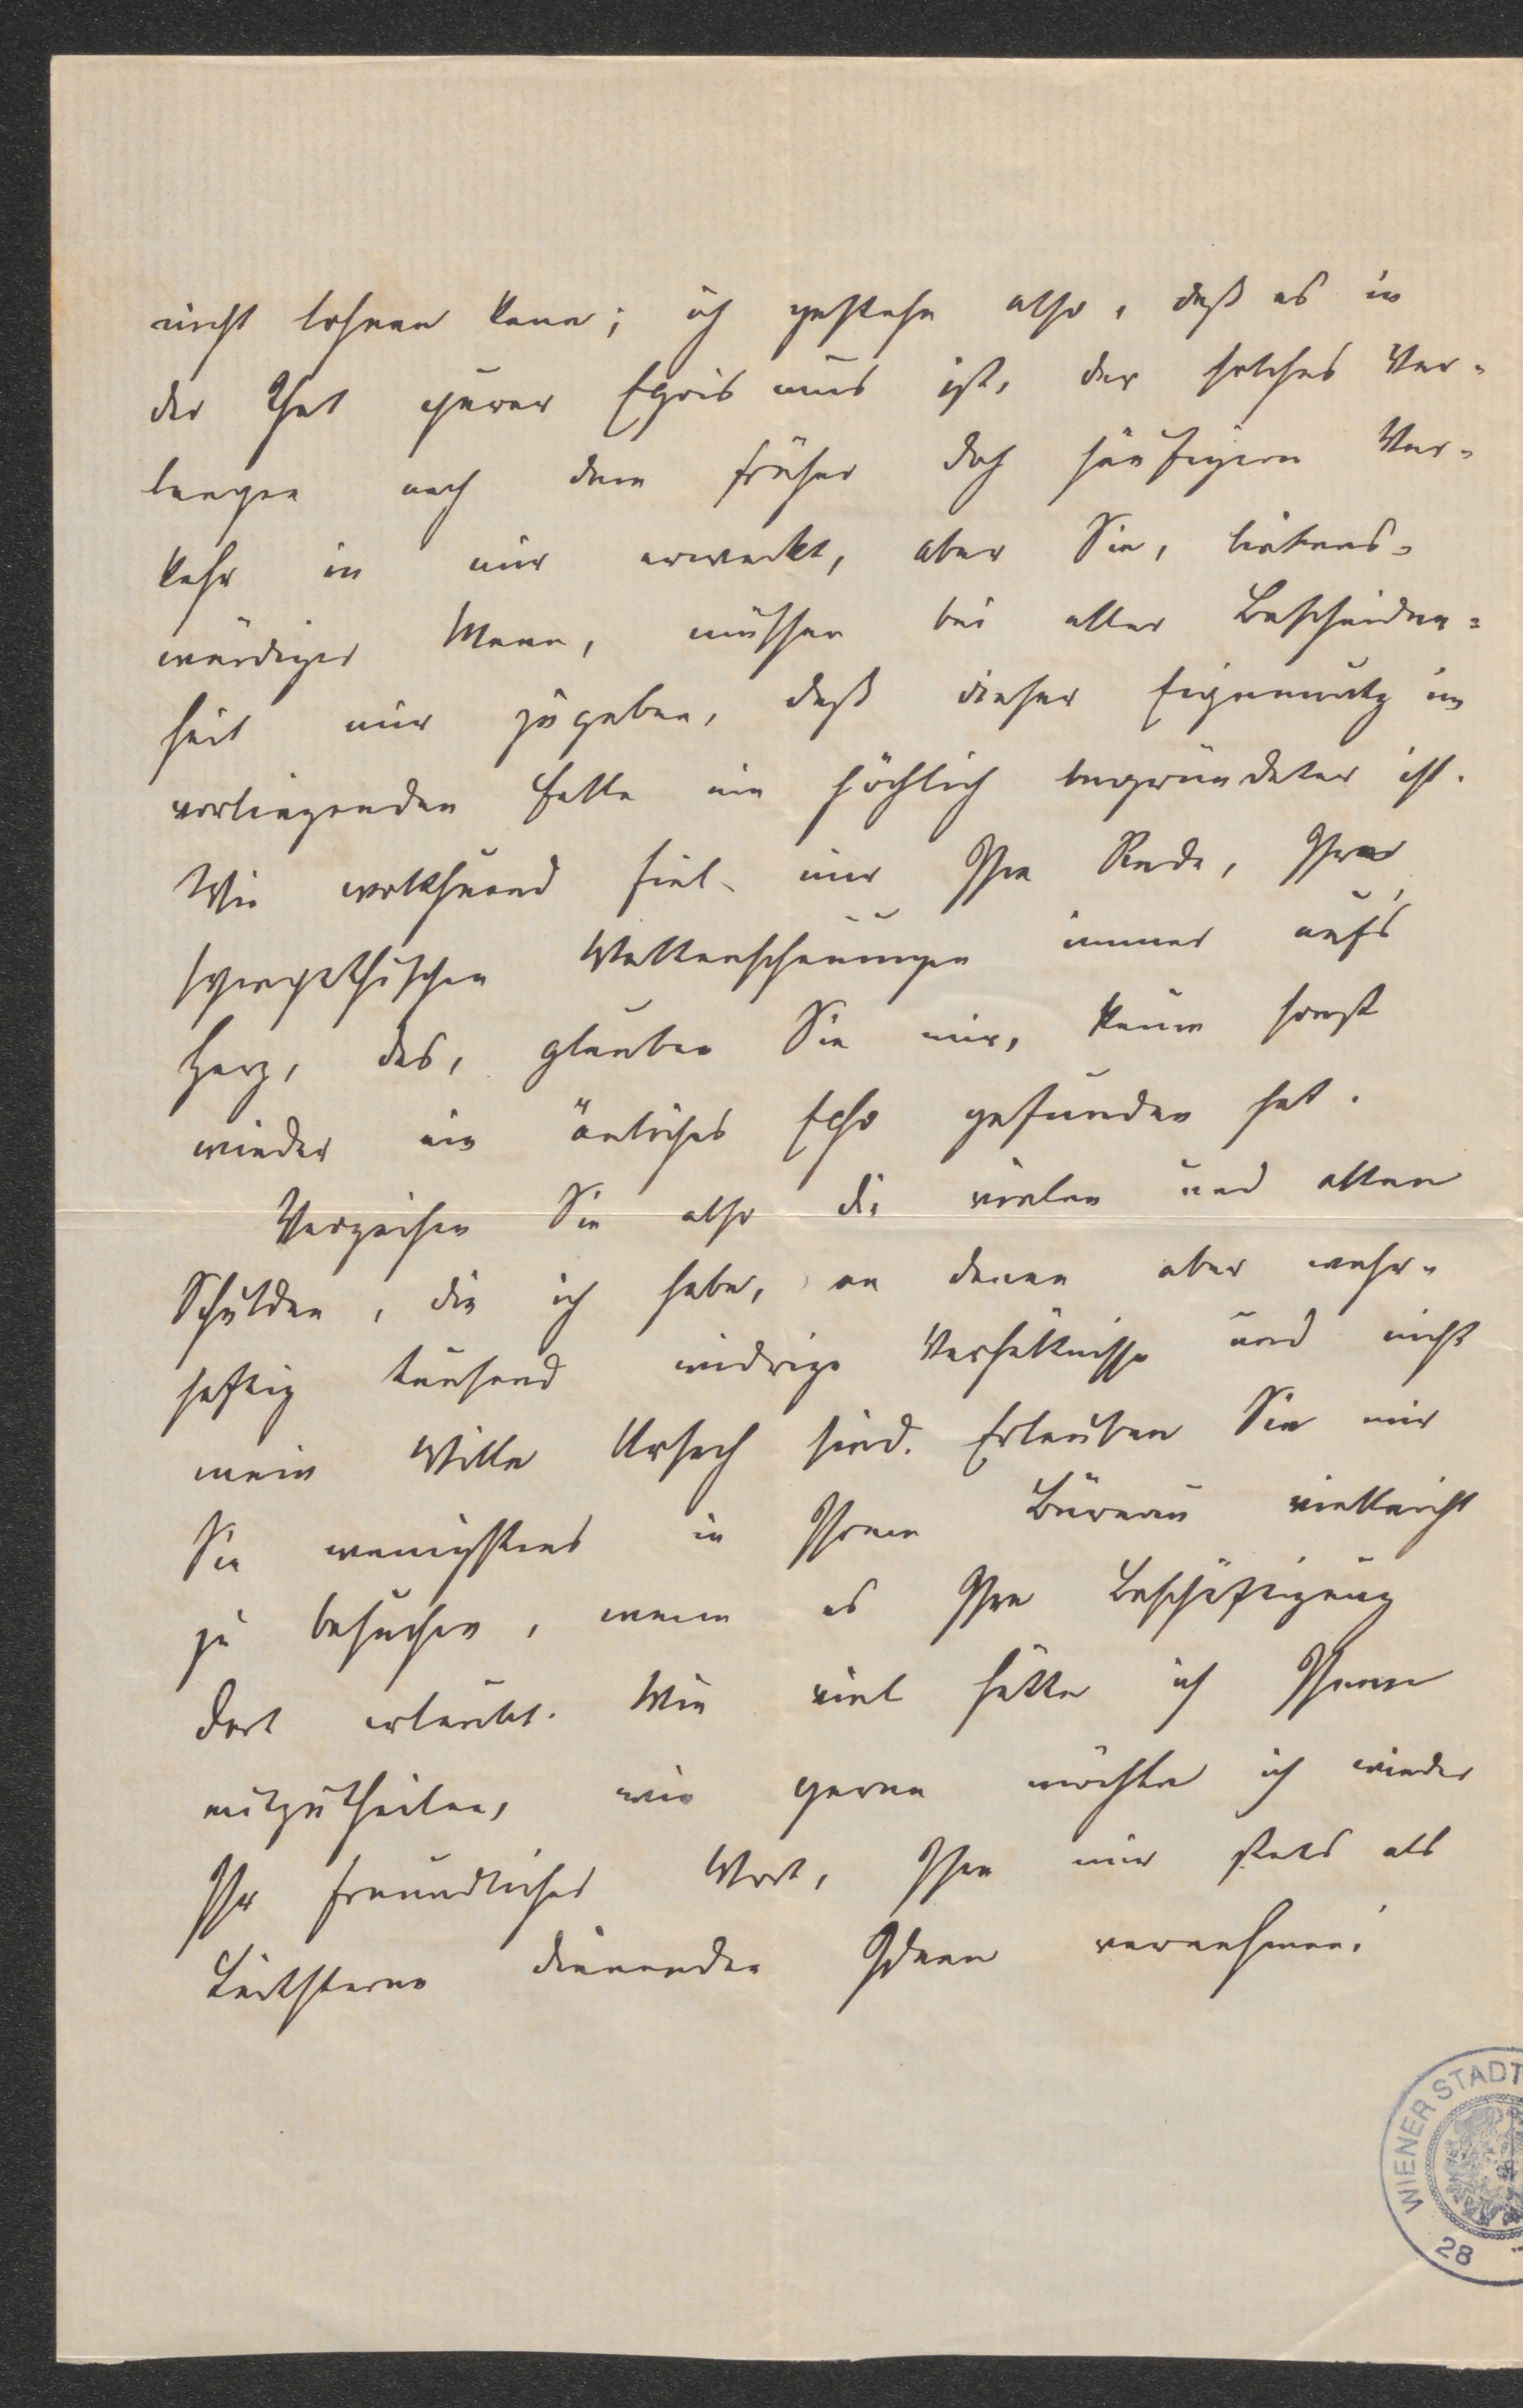 nicht lohnen kann; ich gestehe also, daß es in
der That purer Egoismus ist, der solches Ver-
langen nach dem früher doch häufigern Ver-
kehr in mir erweckt, aber Sie, liebens-
würdiger Mann, müssen bei aller Bescheiden-
heit mir zugeben, daß dieser Eigennutz im
vorliegenden Falle ein höchlich begründeter ist.
Wie wolthuend fiel mir Ihre Rede, Ihre
sympathischen Weltanschauungen immer auf's
Herz, das, glauben Sie mir, kaum sonst
wieder ein änliches Echo gefunden hat.
Verzeihen Sie also die vielen und alten
Schulden, die ich habe, an denen aber wahr-
haftig tausend widrige Verhältnisse und nicht
mein Wille Ursach sind. Erlauben Sie mir
Sie wenigstens in Ihrem Büreau vielleicht
zu besuchen, wenn es Ihre Beschäftigung
dort erlaubt. Wie viel hätte ich Ihnen
mitzutheilen, wie gerne möchte ich wieder
Ihr freundliches Wort, Ihre mir stets als
Leitsterne dienenden Ideen vernehmen!
WIENER STADT
28